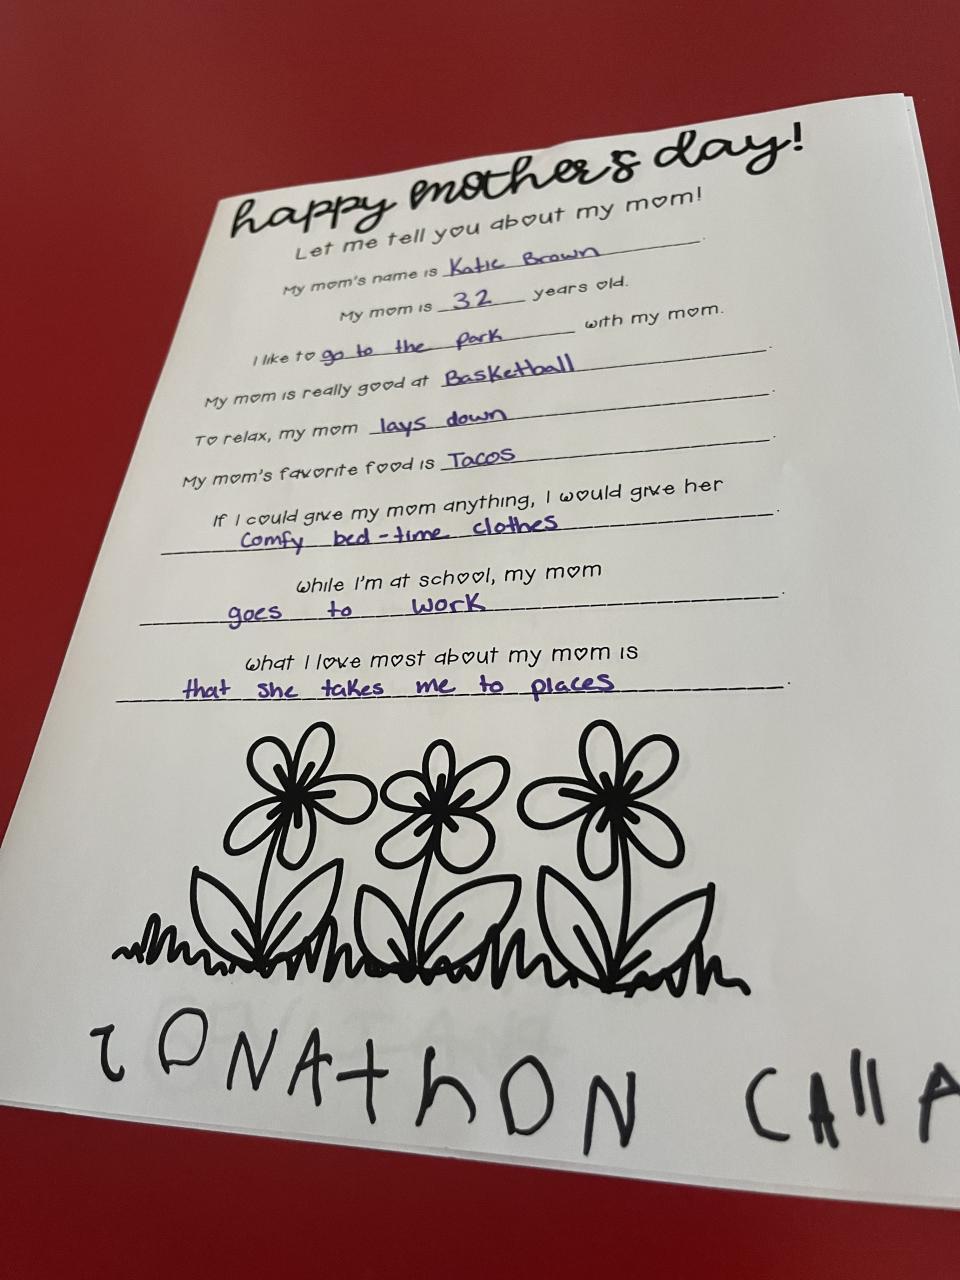 happy mother's day!
Let me tell you about my mom!
My mom's name is Katie Brown.
My mom is 32 years old.
I like to go to the park with my mom.
My mom is really good at Basketball.
To relax, my mom lays down.
My mom's favorite food is Tacos.
If I could give my mom anything, I would give her
Comfy bed-time clothes.
While I'm at school, my mom
goes to work.
What I love most about my mom is
that she takes me to places.
JONAthON CAllA